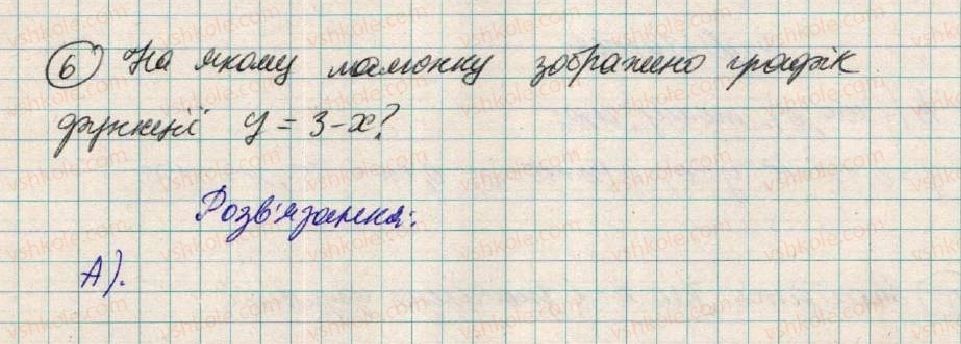 6 На якому малюнку зображено графік
функції y = 3 - x?
Розв'язання:
А).